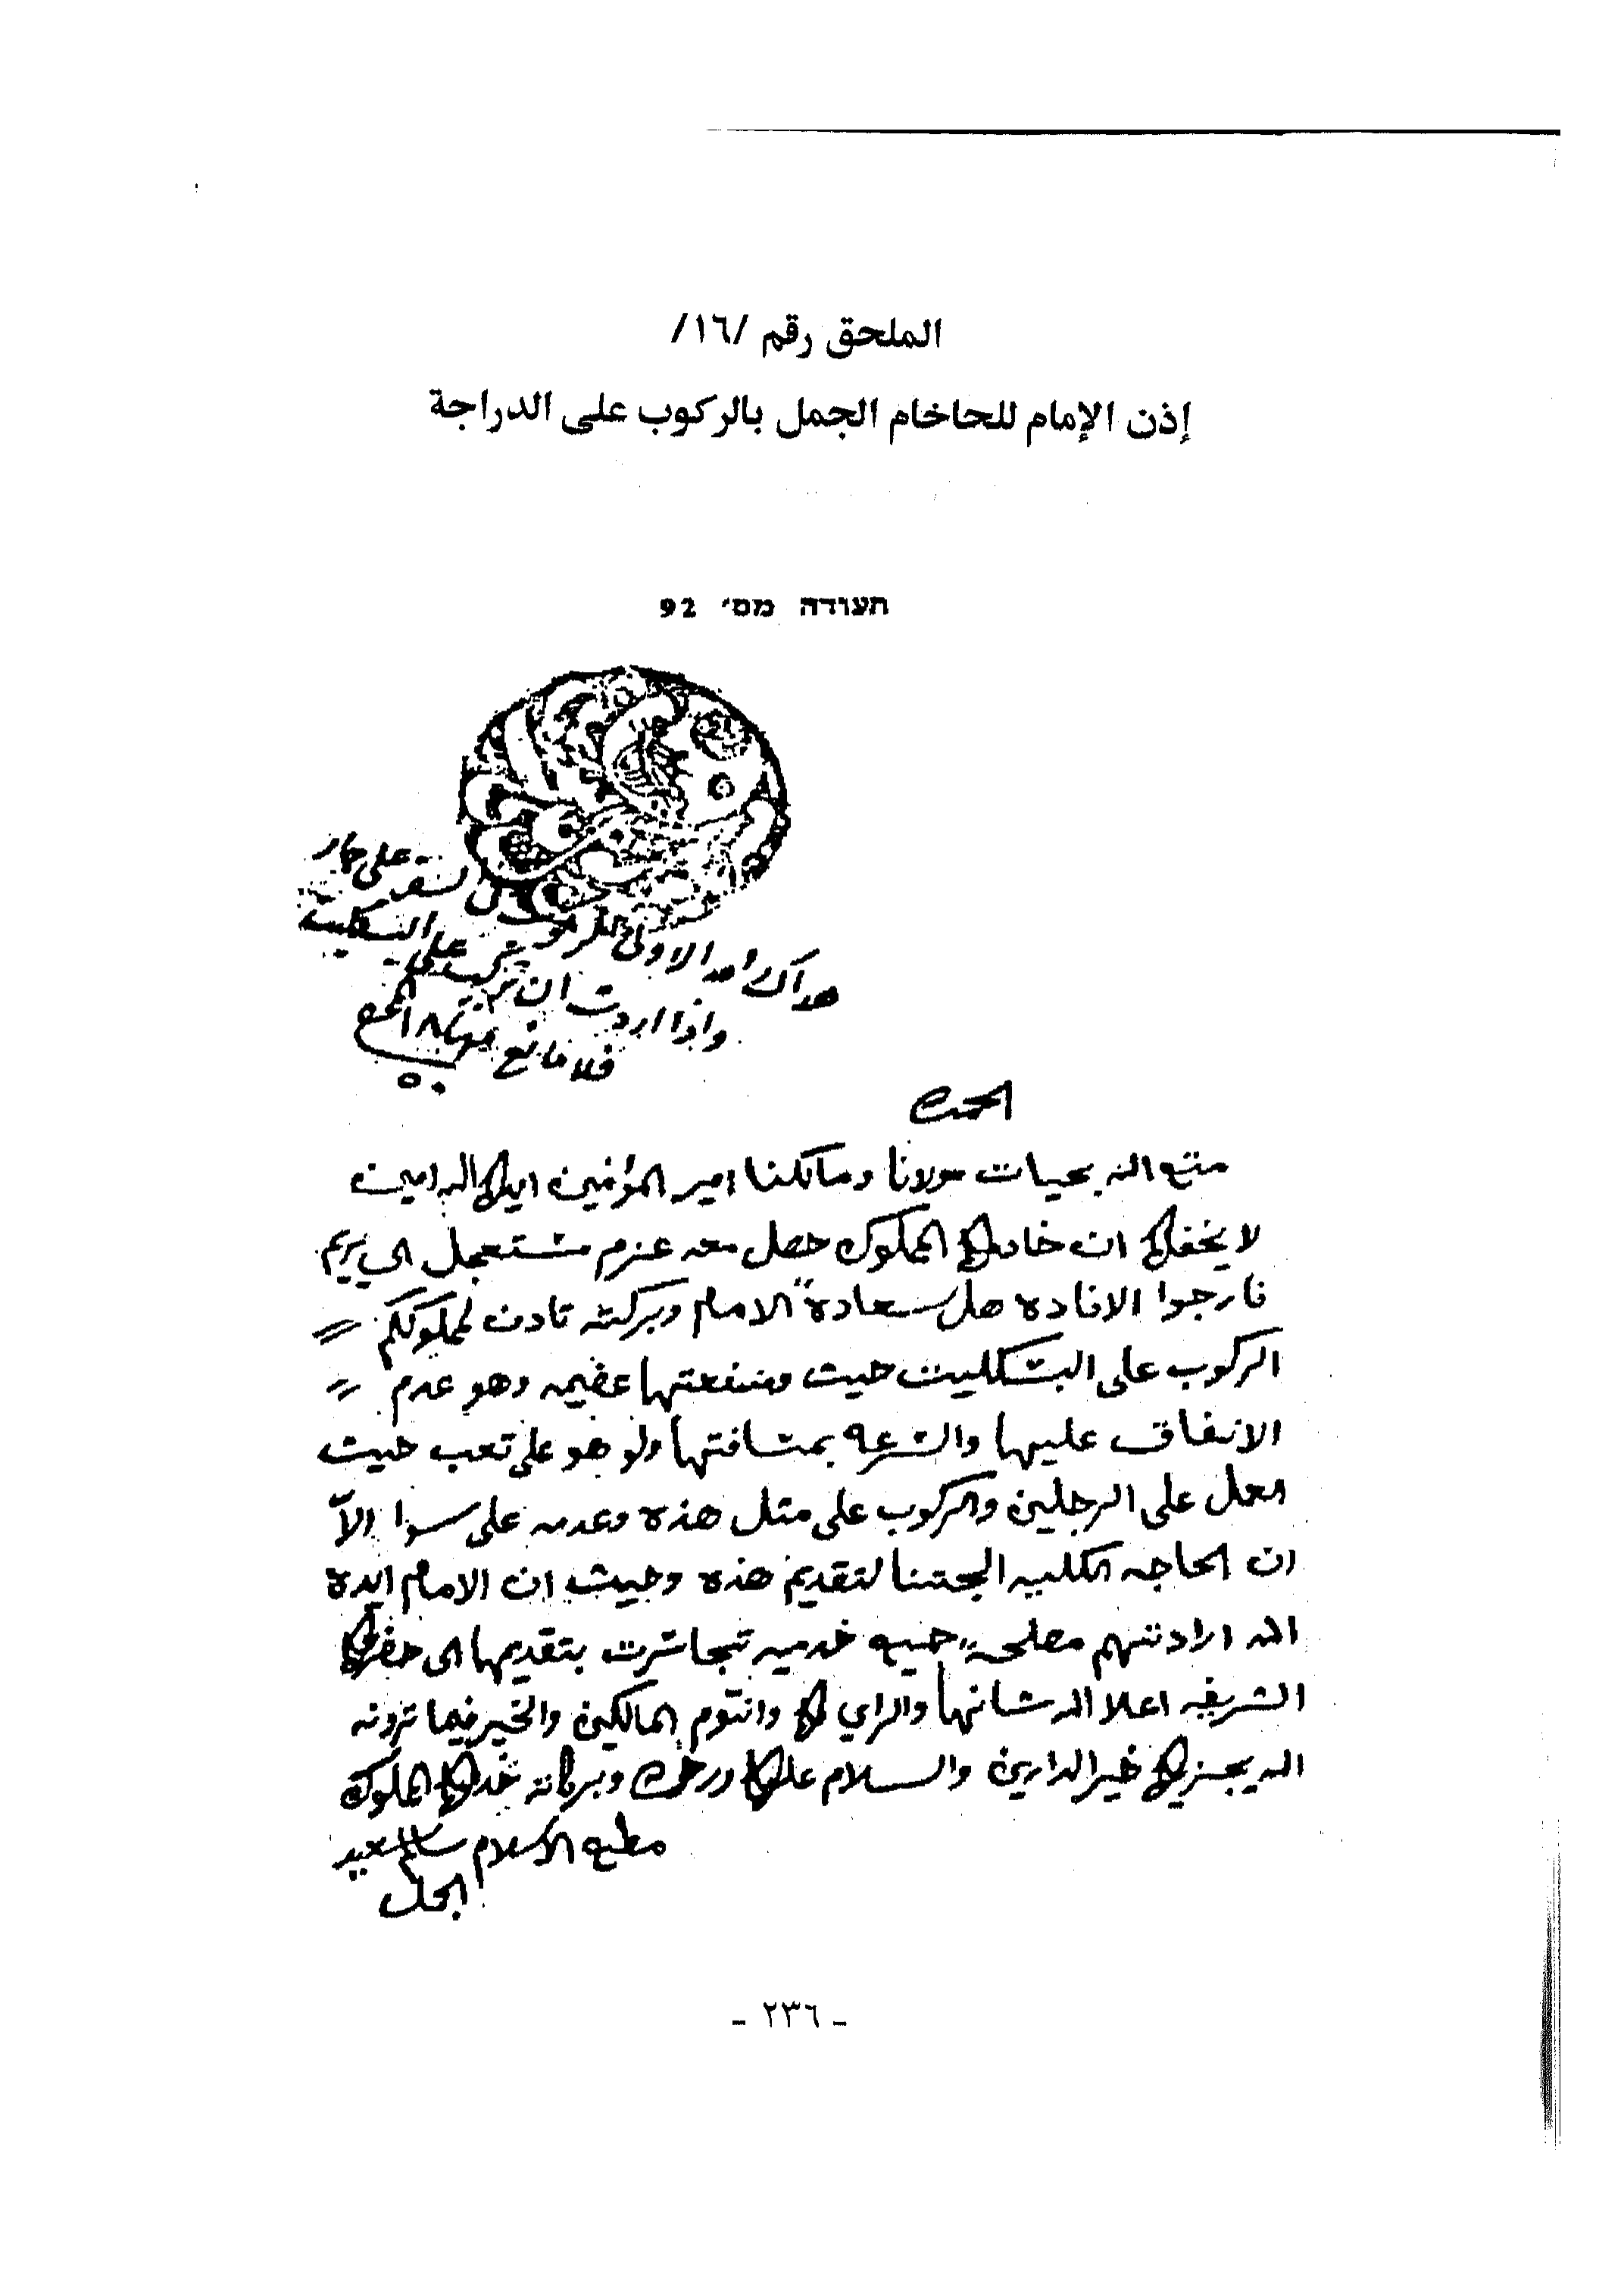 الملحق رقم /١٦/
إذن الإمام للحاخام الجمل بالركوب على الدراجة
תעודה מס׳ 92
على حمار
هداك الله الاولى السفر
واذا اردت ان تركب على البسكليت
فلا مانع
الحمد لله
متع الله بحيات مولانا ومالكنا امير المؤمنين ايدكم الله امين
لا يخفاكم ان خادمكم المملوك حصل معه عزم مستعجل الى يريم
فارجوا الافاده هل سعادة الامام وبركته تاذن لمملوككم
الركوب على البسكليت حيث ومنفعتها عضيمه وهو عدم
الانفاق عليها والسرعه بمسافتها ولو هو على تعب حيث
العمل على الرجلين والركوب على مثل هذه وعدمه على سوا الآ
ان الحاجه الكليه الجتنا لتقديم هذه وحيث ان الامام ايده
الله ارادتهم مصلحة خدميه تجاسرت بتقديمها الى حضرتكم
الشريفه اعلا الله شانها والراي لكم وانتوم المالكين والخير فيما ترونه
الله يجزيكم خير الدارين والسلام عليكم ورحمة الله وبركاته خادمكم المملوك
مطيع الاسلام سالم سعيد
الجمل
- ٢٣٦ -